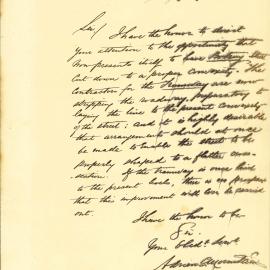 Sir/ I have the honor to direct
your attention to the opportunity that
now presents itself to have
cut down to a proper convexity. The
contractor for the Tramway are now
stripping the roadway, preparatory to
laying the line to the present convexity
of the street; and it is highly desirable
that arrangements should at once
be made to enable the street to be
properly shaped to a flatter cross-
section. If the tramway is once laid
to the present levels, there is no prospect
that this improvement will ever be carried
out.
I have the honor to be
Sir
Your Obedt. Servt.